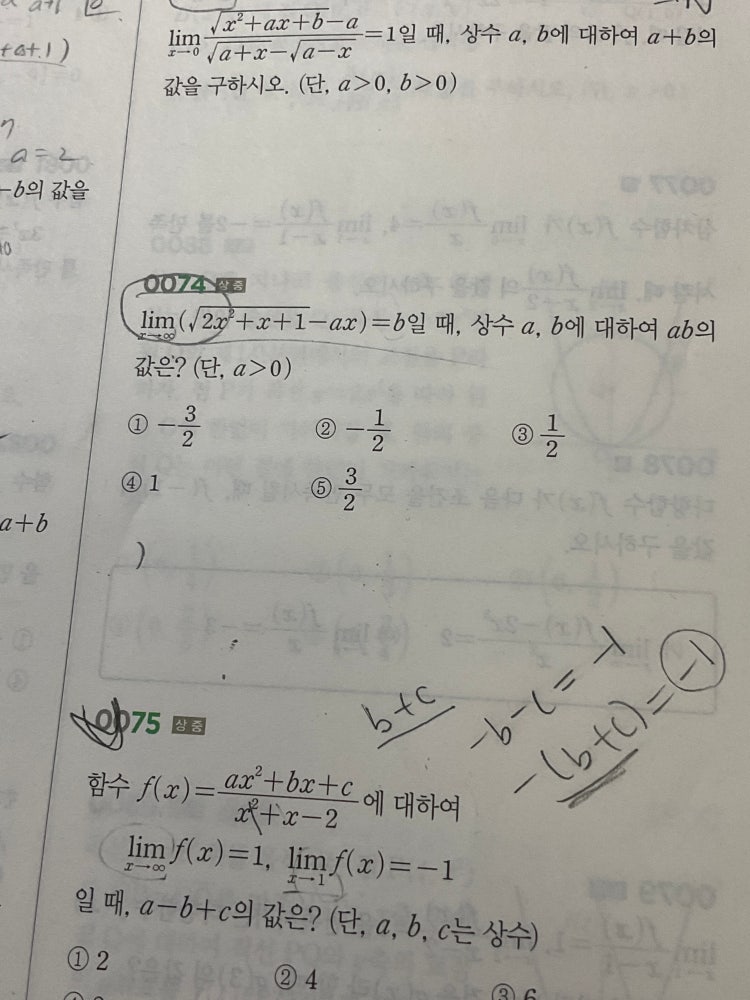 a+1
+a+.1)
a=2
-b의 값을
a+b
lim x→0 (√(x²+ax+b)-a)/(√(a+x)-√(a-x)) =1일 때, 상수 a, b에 대하여 a+b의
값을 구하시오. (단, a>0, b>0)
0074 상 중
lim x→∞ (√(2x²+x+1)-ax)=b일 때, 상수 a, b에 대하여 ab의
값은? (단, a>0)
① -3/2 ② -1/2 ③ 1/2
④ 1 ⑤ 3/2
)
b+c
-b-c=-1
-(b+c)=-1
0075 상 중
함수 f(x)=(ax²+bx+c)/(x²+x-2)에 대하여
lim x→∞ f(x)=1, lim x→1 f(x)=-1
일 때, a-b+c의 값은? (단, a, b, c는 상수)
① 2 ② 4 ③ 6